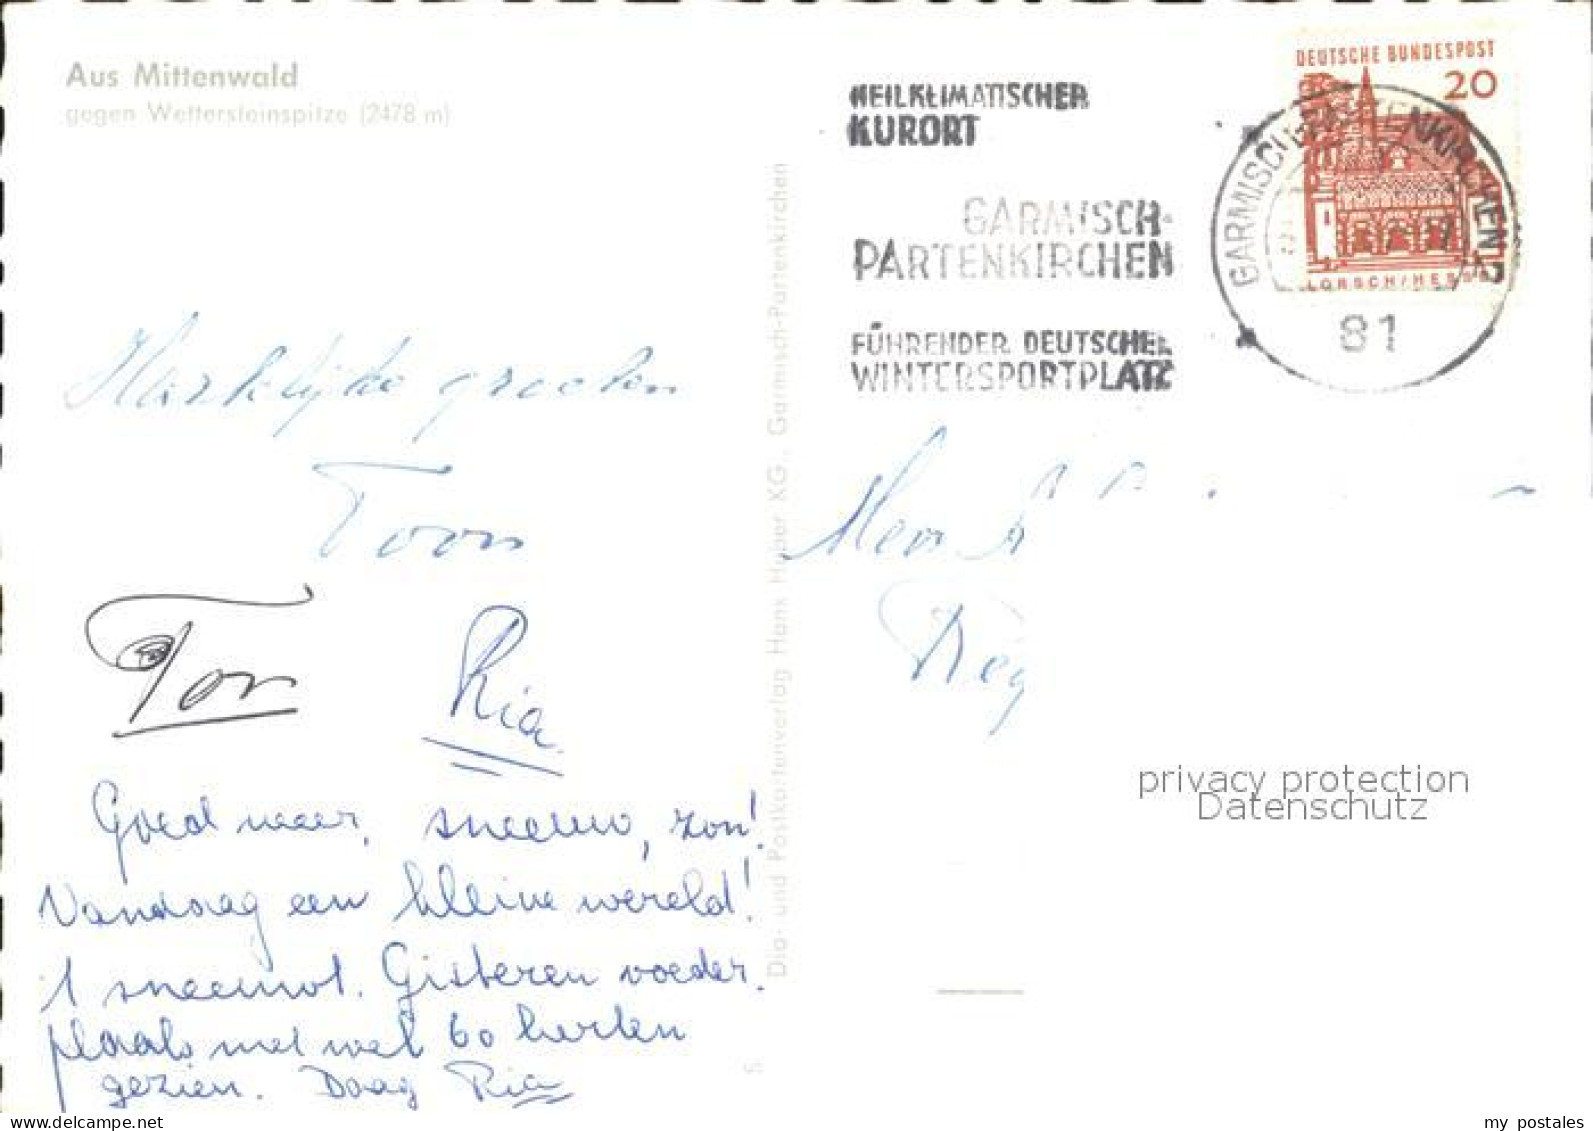 Aus Mittenwald
gegen Wettersteinspitze (2478 m)
HEILKLIMATISCHER
KURORT
GARMISCH-
PARTENKIRCHEN
FÜHRENDER DEUTSCHER
WINTERSPORTPLATZ
DEUTSCHE BUNDESPOST
20
LORSCH/HESSEN
GARMISCH-PARTENKIRCHEN 2
81
Hartelijke groeten
Toon
Ton
Ria
Goed weer, sneeuw, zon!
Vandaag een kleine wereld!
1 sneeuwot. Gisteren voeder.
plaats met wel 60 herten
gezien. Daag Ria
Dia- und Postkartenverlag Hans Huber KG., Garmisch-Partenkirchen
5
privacy protection
Datenschutz
www.delcampe.net
my_postales